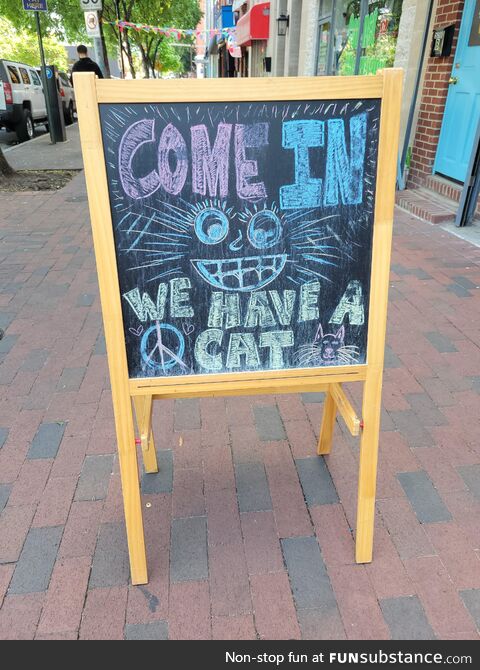 COME IN
WE HAVE A
CAT
Non-stop fun at FUNsubstance.com